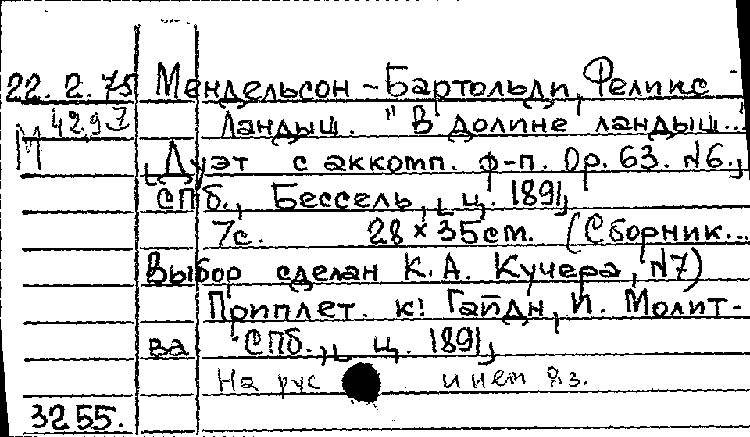 22.2.75 Мендельсон-Бартольди, Феликс
М 42,9 Ландыш. "В долине ландыш..."
[Дуэт с аккомп. ф-п. Op. 63. №6.]
СПб., Бессель, [ц. 1891]
7с. 28 × 35cm. (Сборник...
Выбор сделан К.А. Кучера, №7)
Приплет. к: Гайдн, И. Молит-
ва СПб., [ц. 1891]
На рус и нем яз.
3255.